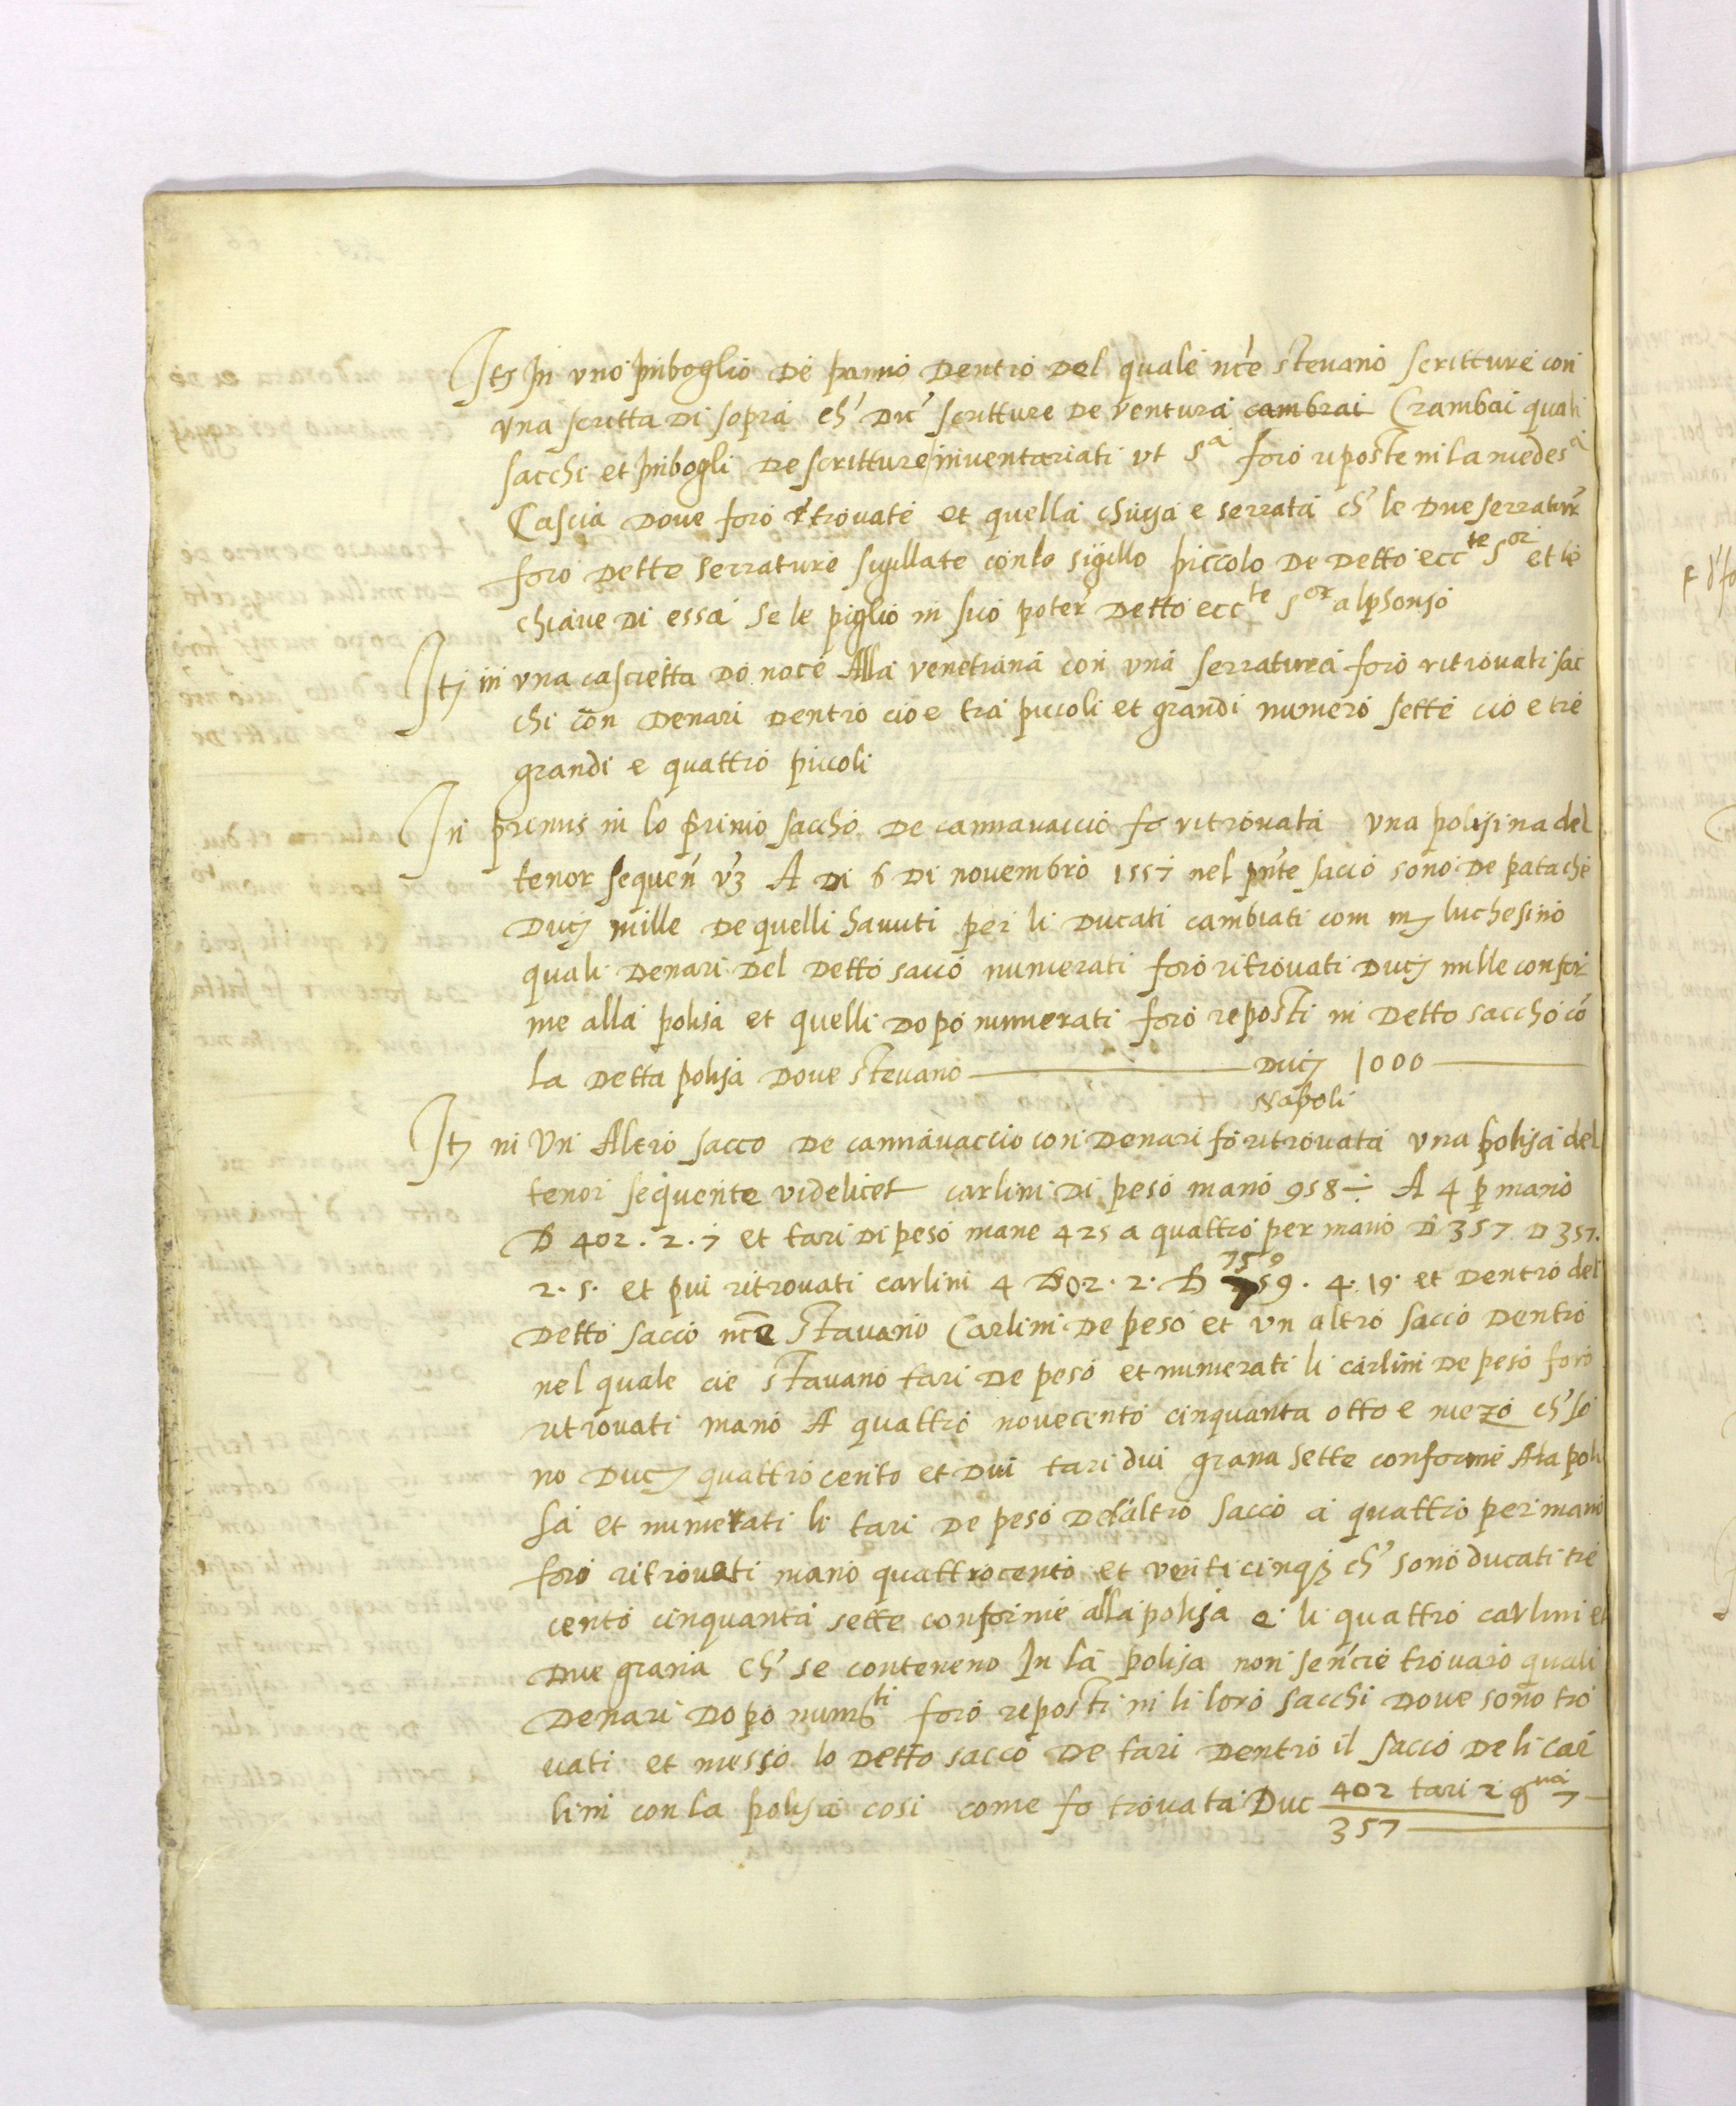 Itẽ In uno Inboglio de panno dentro del quale nc̃e stevano scritture con
una scritta di sopra ch' dic' scritture de ventura cambrai Crambai quali
sacchi et Inbogli de scritture inventariati ut sᵃ foro riposte in la medesᵃ
Cascia dove foro ritrovate et quella chiusa e serrata ch' le due serratur'
foro dette serrature sigillate con lo sigillo piccolo de detto eccᵗᵉ Sᵒʳ et le
chiave di essa se le piglio in suo poter' detto eccᵗᵉ Sᵒʳ alphonso
Itẽ in una cascietta de noce Alla venetiana con una serratura foro ritrovati sac
chi con denari dentro cioe tra piccoli et grandi numero sette cio e tre
grandi e quattro piccoli
In primis in lo primo saccho de cannavaccio fo ritrovata una polisina del
tenor sequen' vz A di 6 di novembro 1557 nel pn̄te sacco sono de patache
Ducẽ mille de quelli havuti per li ducati cambiati com mẽ luchesino
quali denari del detto sacco numerati foro ritrovati ducẽ mille confor
me alla polisa et quelli dopo numerati foro reposti in detto saccho cō
la detta polisa dove stevano — Ducẽ 1000 —
Napoli
Itẽ in Un Altro sacco de cannavaccio con denari fo ritrovata una polisa del
tenor sequente videlicet carlini di peso mano 958 ÷ A 4 p mano
D 402 . 2 . 7 et tari di peso mane 425 a quattro per mano D 357 D 357.
2 . 5 . et piu ritrovati carlini 4 D 02 . 2 . D 759 59 . 4 . 19 . et dentro del
detto sacco nc̃e stavano Carlini de peso et un altro sacco dentro
nel quale cie stavano tari de peso et numerati li carlini de peso foro
ritrovati mano A quattro novecento cinquanta otto e mezo ch' so
no Ducẽ quattrocento et dui tari dui grana sette conforme Ala poli
sa et numerati li tari de peso del'altro sacco a quattro per mano
foro ritrovati mano quattrocento et venticinq₃ ch' sono ducati tre
cento cinquanta sette conforme alla polisa e li quattro carlini et
due grana ch' se conteneno In la polisa non sen'cie trovaro quali
denari dopo numᵗⁱ foro reposti in li loro sacchi dove sono tro
vati et messo lo detto sacco de tari dentro il sacco de li car
lini con la polisa cosi come fo trovata Duc 402 tari 2 gⁿᵃ 7 —
357 —